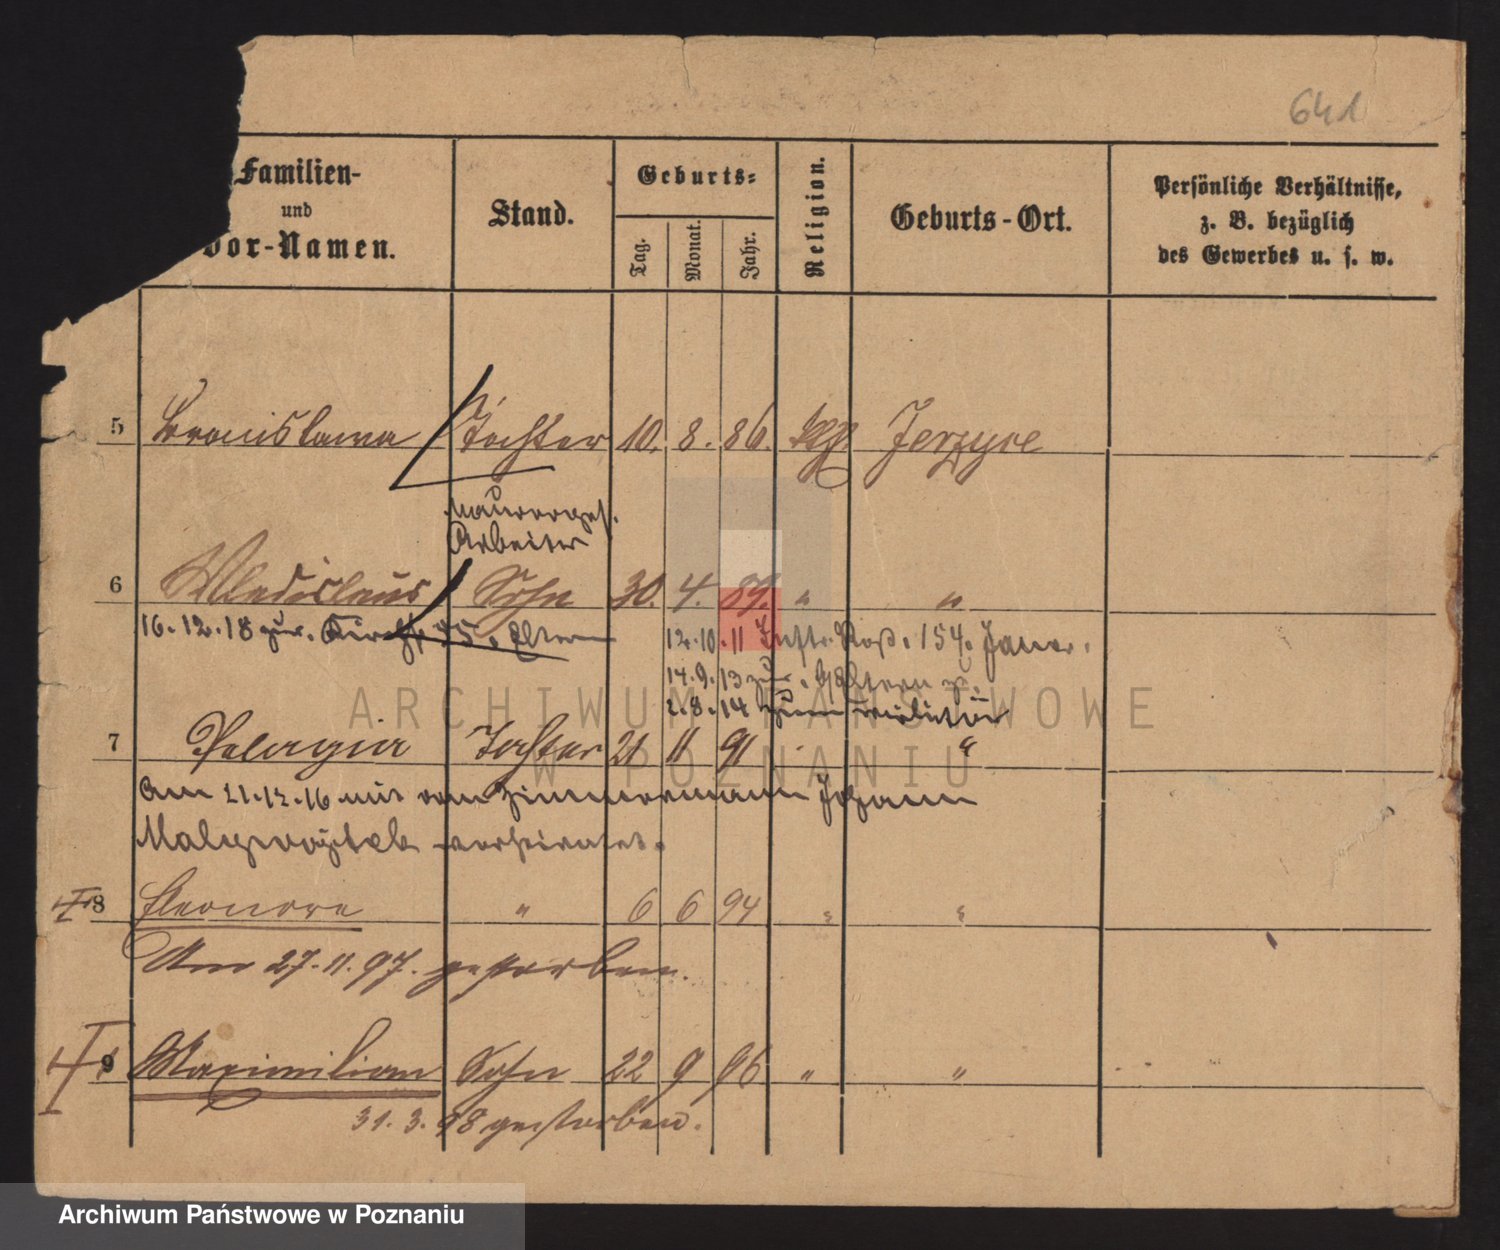 641
Familien-
und
Vor-Namen.
Stand.
Geburts-
Tag.
Monat.
Jahr.
Religion.
Geburts-Ort.
Persönliche Verhältnisse,
z. B. bezüglich
des Gewerbes u. s. w.
5 Bronislawa Tochter 10. 8. 86. kth. Jerzyce
Maurerges.
Arbeiter
6 Wladislaus Sohn 30. 4. 89. " "
16.12.18 zur. Kirchstr 35. Eltern
12.10.11 Inftr. Regt. 154. Jauer.
14.9.13 zur. Eltern
2.8.14 zum Militär
7 Pelagia Tochter 21 11 91 "
Am 21.12.16 mit dem Zimmermann Johann
verheiratet.
8 Eleonore " 6 6 94 " "
Am 27.11.97. gestorben.
9 Maximilian Sohn 22 9 96 " "
31.3.98 gestorben.
ARCHIWUM PAŃSTWOWE
W POZNANIU
Archiwum Państwowe w Poznaniu